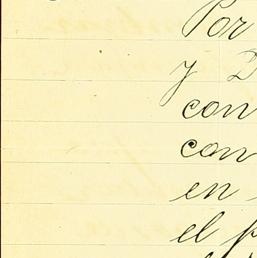 Por
y D
con
con
en
el p